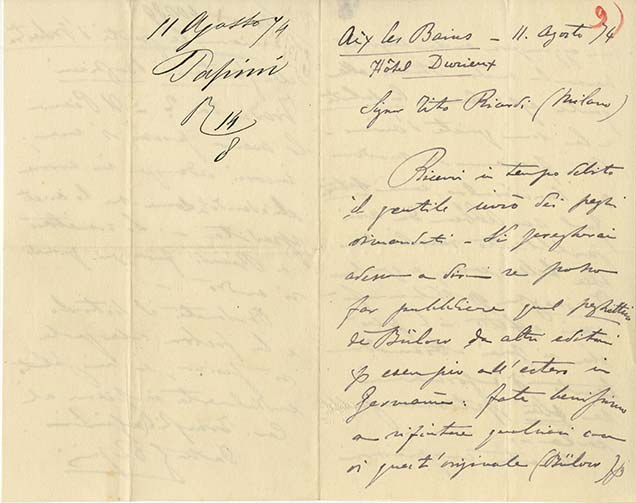 11 Agosto 74
Papini
R 14
8
9)
Aix les Bains - 11. Agosto 74
Hôtel Durieux
Signor Tito Ricordi (Milano)
Ricevei in tempo debito
il gentile invio dei pezzi
domandati - Li pregherei
adesso a dirmi se posso
far pubblicare quel pezzettino
de Bülow da altri editori
p esempio all'estero in
Germania: fate benissimo
a rifiutare qualsiasi
quest'originale (Bülow)